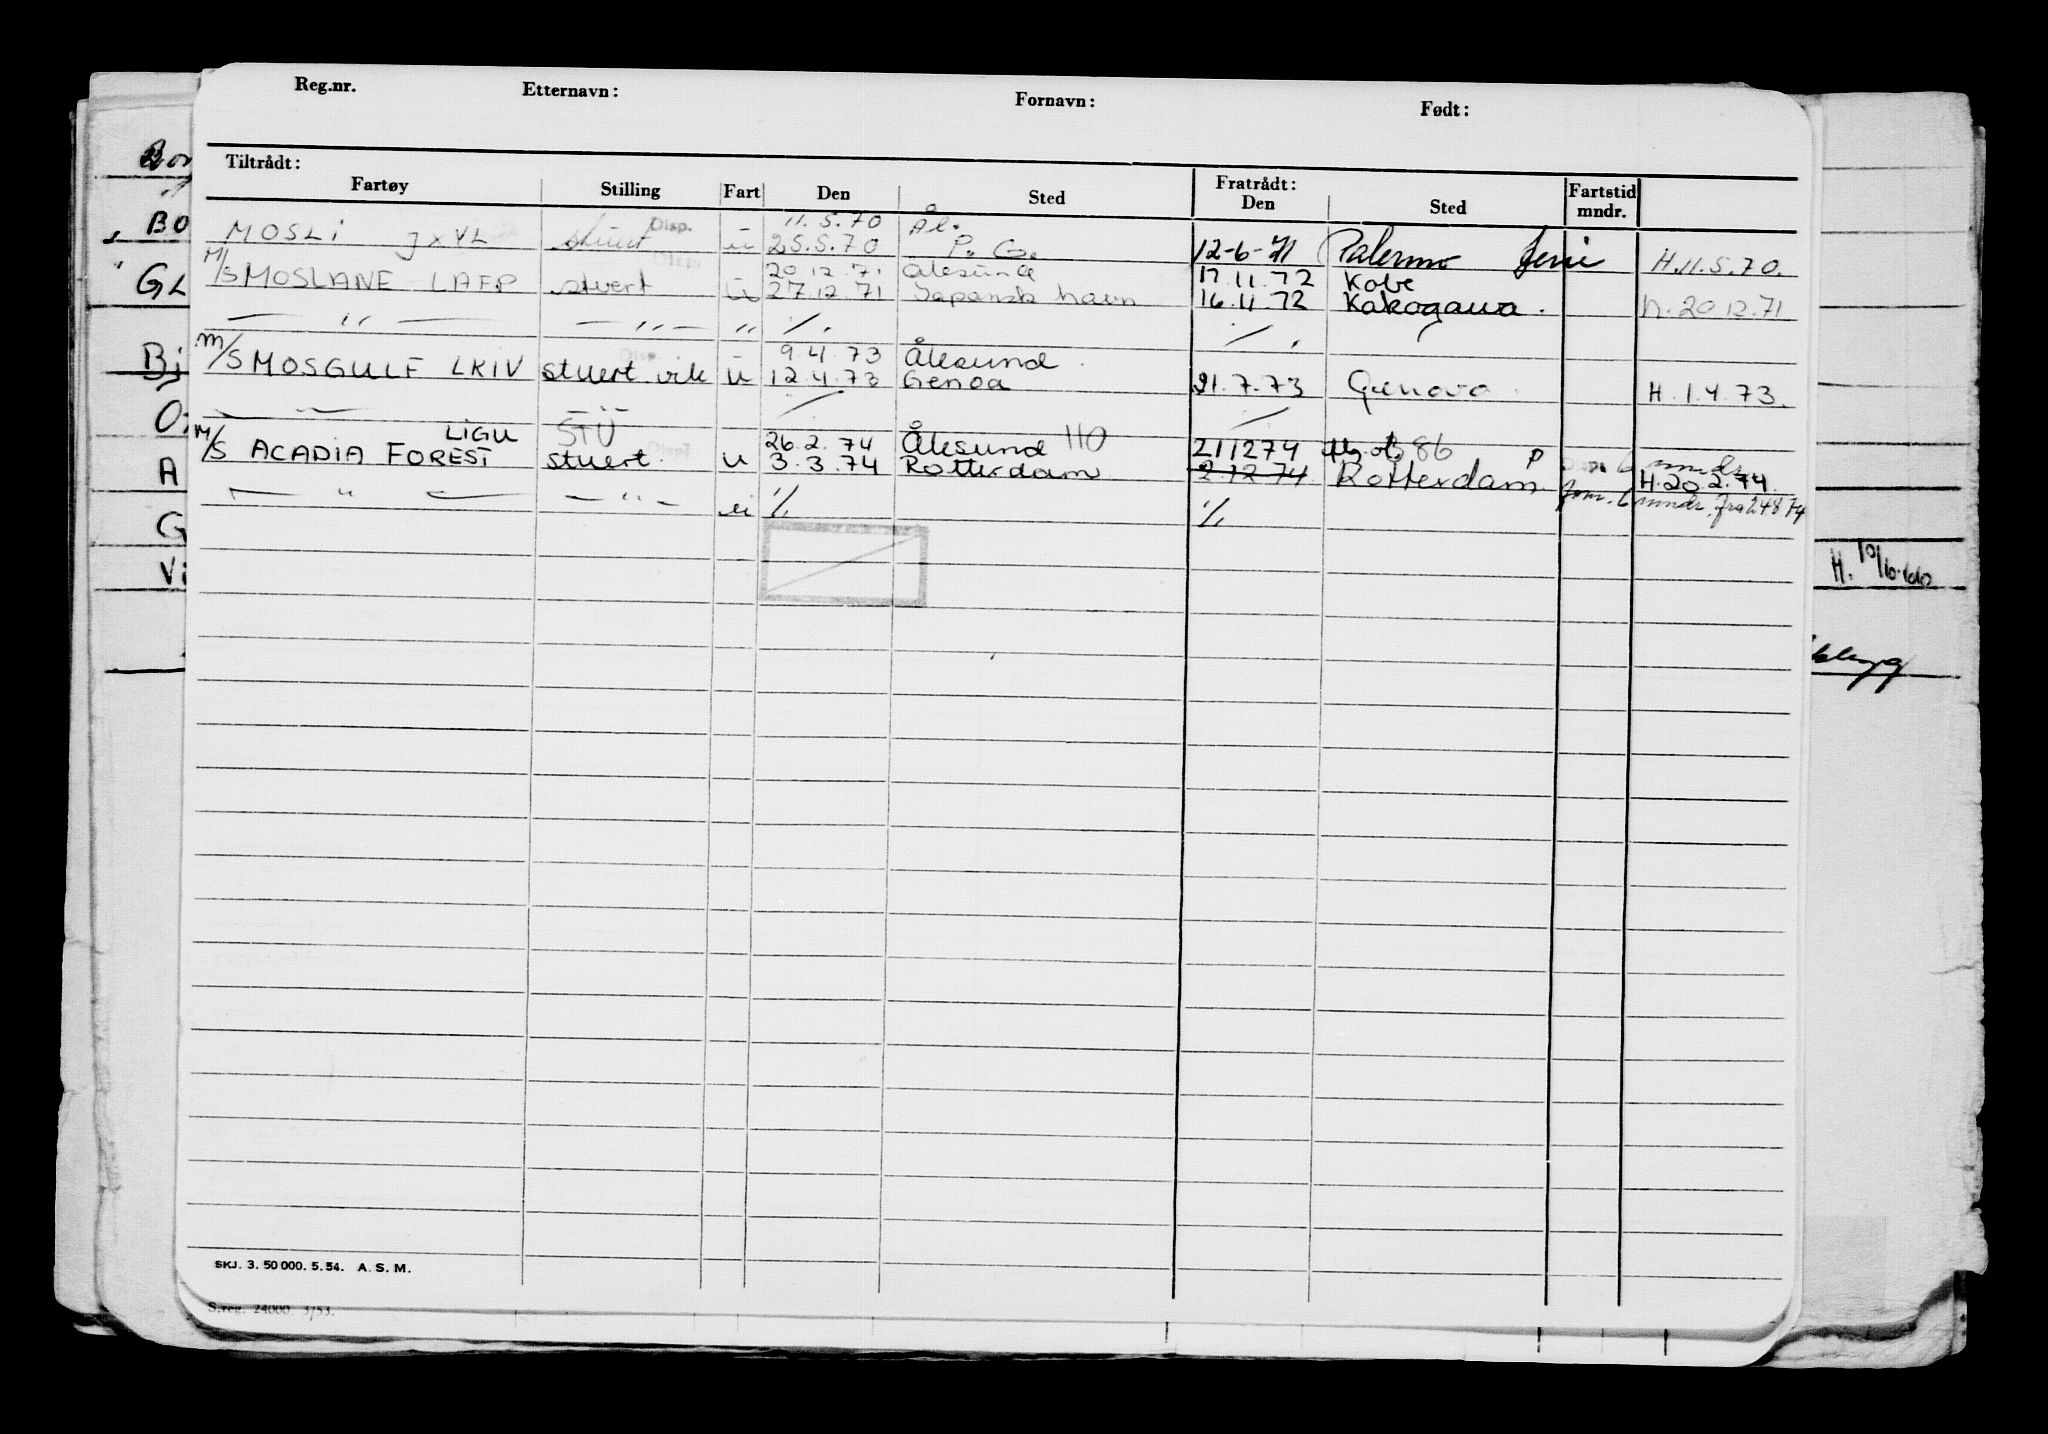 Reg.nr. Etternavn: Fornavn: Født:
Tiltrådt: Fratrådt:
Fartøy Stilling Fart Den Sted Den Sted Fartstid mndr.
Disp. 11.5.70 Ål.
MOSLI JXVL stuert u 25.5.70 P. G. 12-6-71 Palermo ferie H.11.5.70.
20.12.71 Ålesund 17.11.72 Kobe
M/S MOSLANE LAFP stuert u 27.12.71 Japansk havn 16.11.72 Kakogawa. h.20 12.71
— " — — " — " ./. ./.
9.4.73 Ålesund
M/S MOSGULF LKIV stuert vik u 12.4.73 Genoa 31.7.73 Genova H.1.4.73.
— " — — " — ./. ./.
LIGU STU 26.2.74 Ålesund 110 211274 86 P 6 mndr
M/S ACADIA FOREST stuert. u 3.3.74 Rotterdam 2 12 74 Rotterdam H.20.2.74
— " — — " — u ./. ./. 6 mndr. fra 24874
SKJ. 3. 50 000. 5. 54. A. S. M.
S.reg. 24000 3/53.
BO
GL
Bj
A
G
Vi
H. 10/6.60